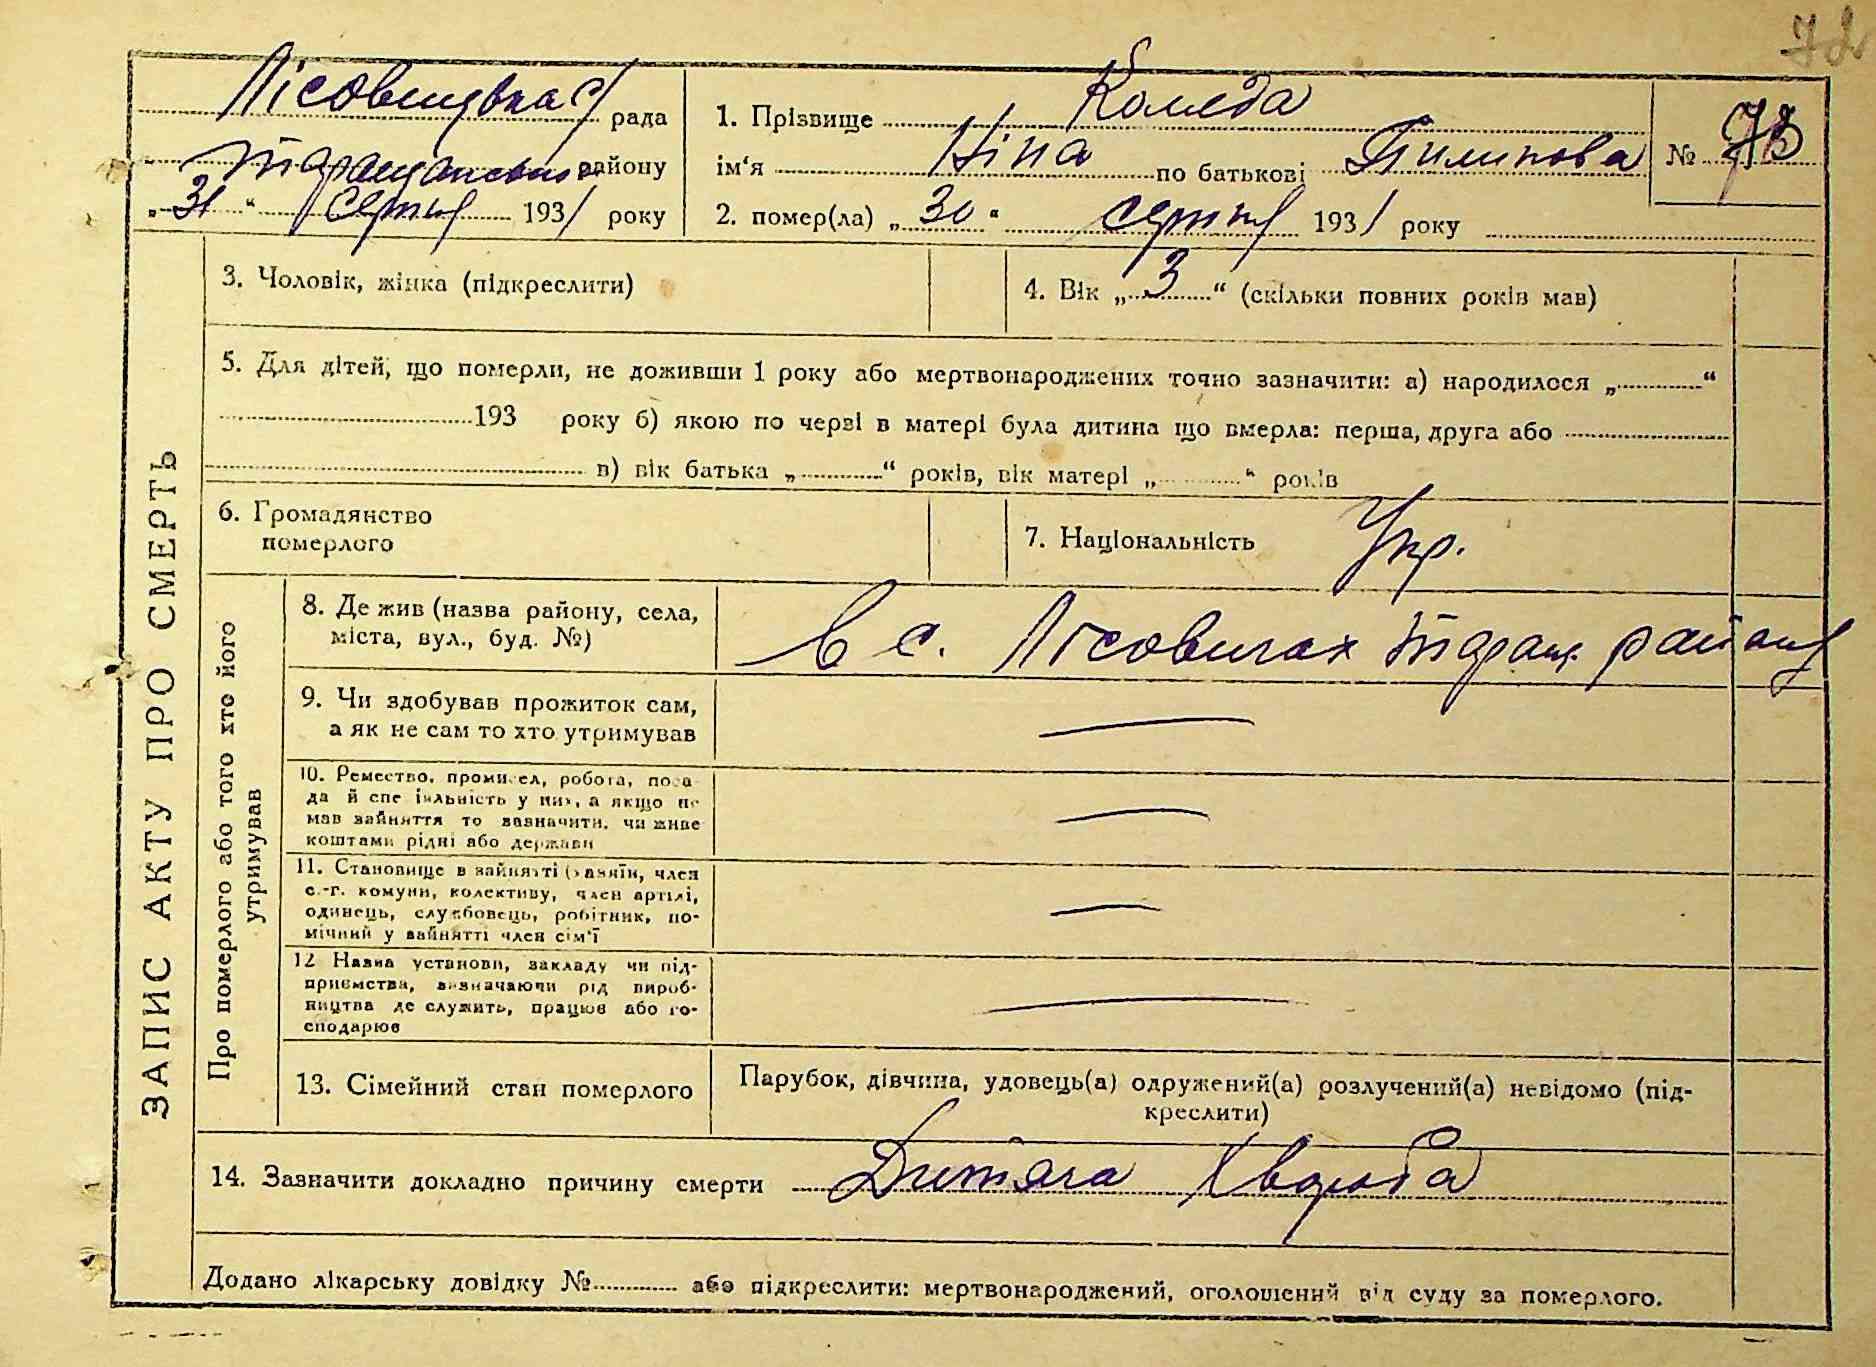 72
Лісовицька с/ рада
Таращанського району
„ 31 “ Серпня 1931 року
1. Прізвище Коляда
ім‘я Ніна по батькові Пилипова
№ 73
2. помер(ла) „ 30 “ серпня 1931 року
ЗАПИС АКТУ ПРО СМЕРТЬ
3. Чоловік, жінка (підкреслити)
4. Вік „ 3 “ (скільки повних років мав)
5. Для дітей, що померли, не доживши 1 року або мертвонароджених точно зазначити: а) народилося „ “
193 року б) якою по черзі в матері була дитина що вмерла: перша, друга або
в) вік батька „ “ років, вік матері „ “ років
6. Громадянство
померлого
7. Національність Укр.
Про померлого або того хто його
утримував
8. Де жив (назва району, села,
міста, вул., буд. №)
В с. Лісовичах Таращ. району
9. Чи здобував прожиток сам,
а як не сам то хто утримував
10. Ремество, промисел, робота, поса-
да й спеціяльність у них, а якщо не
мав зайняття то зазначити, чи живе
коштами рідні або держави
11. Становище в зайнятті (хазяїн, член
с.-г. комуни, колективу, член артілі,
одинець, службовець, робітник, по-
мічний у зайнятті член сім‘ї
12 Назва установи, закладу чи під-
приємства, зазначаючи рід вироб-
ництва де служить, працює або го-
сподарює
13. Сімейний стан померлого
Парубок, дівчина, удовець(а) одружений(а) розлучений(а) невідомо (під-
креслити)
14. Зазначити докладно причину смерти Дитяча хвороба
Додано лікарську довідку № або підкреслити: мертвонароджений, оголошений від суду за померлого.